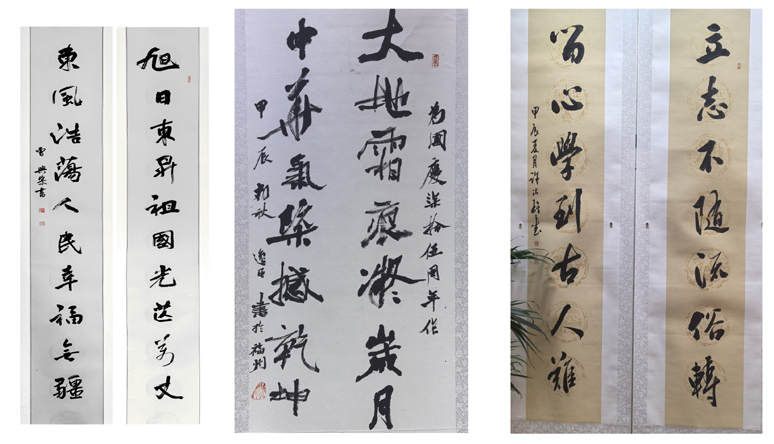 旭日東昇祖國光芒萬丈
東風浩蕩人民幸福無疆
為國慶柒拾伍周年作
大地霜痕凝歲月
中華氣槩撼乾坤
甲辰初秋 書於福州
立志不隨流俗轉
留心學到古人難
甲辰夏月許書